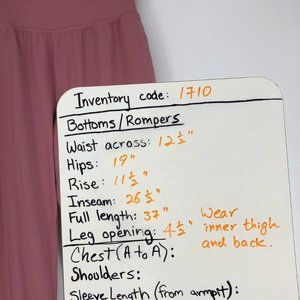 Inventory code: 1710
Bottoms/Rompers
Waist across: 12 1/2"
Hips: 19"
Rise: 11 1/2"
Inseam: 26 1/2"
Full length: 37"
Leg opening: 4 1/2"
Wear
inner thigh
and back.
Chest (A to A):
Shoulders:
Sleeve Length (from armpit):